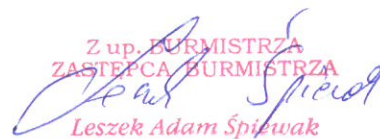 Z up. BURMISTRZA
ZASTĘPCA BURMISTRZA
Leszek Adam Śpiewak